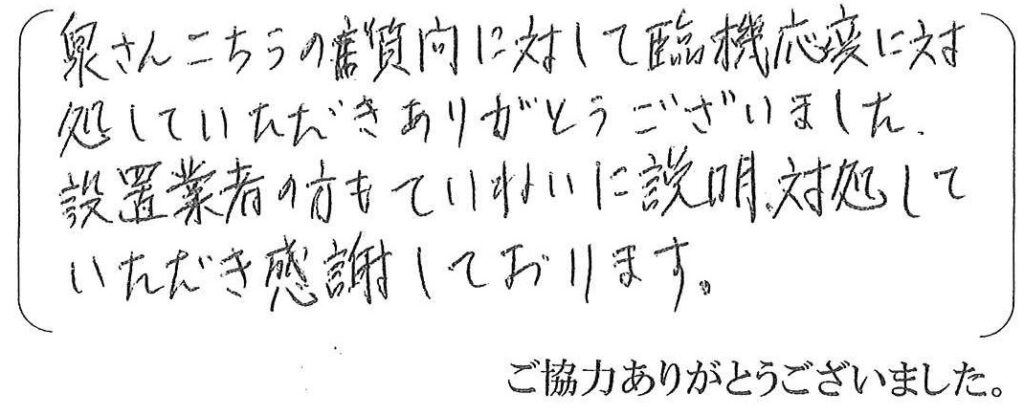 泉さんこちらの質問に対して臨機応変に対
処していただきありがとうございました、
設置業者の方もていねいに説明、対処して
いただき感謝しております。
ご協力ありがとうございました。